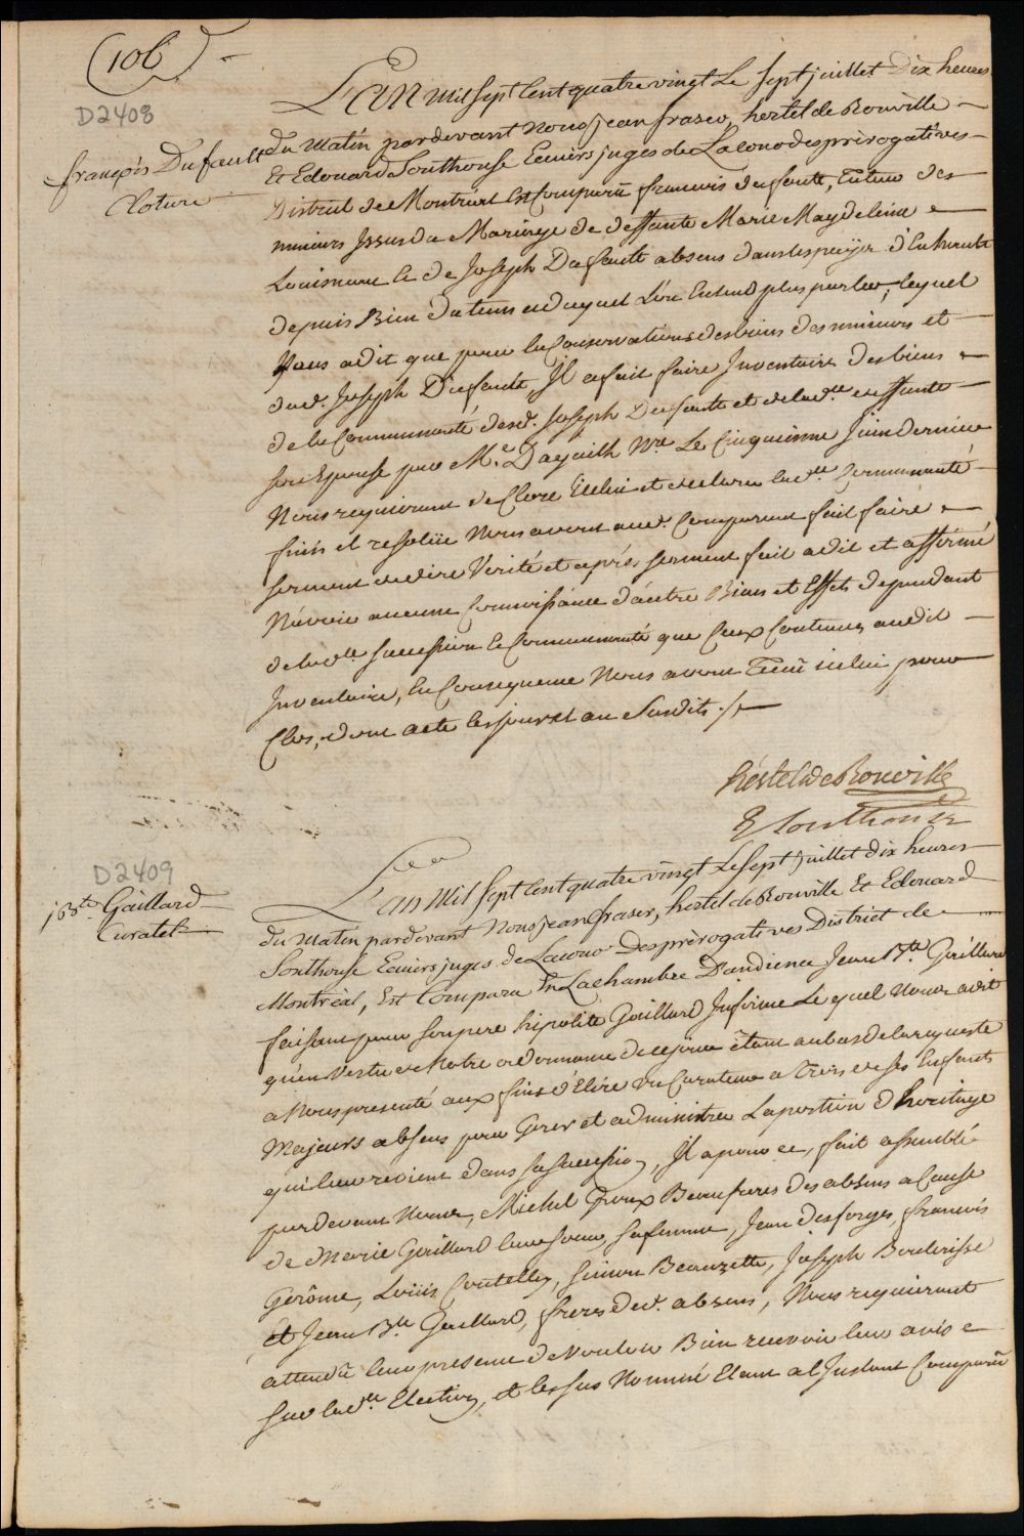 (106)
D2408
françois Dufault
Cloture
L'an mil sept Cent quatre vingt Le sept juillet Dix heures
du Matin pardevant Nous jean fraser, hertel de Rouville
Et Edouard Southouse Ecuiers juges de La Cour des prérogatives
District de Montréal Est Comparu francois dufaute, Tuteur des
mineurs Issus du Mariage de deffunte Marie Magdeleine
et de Joseph Dufault absens dans les païs d'En haut
depuis Bien du tems et duquel L'on Entend plus parler, lequel
Nous a dit que pour la Conservations des biens des mineurs et
dud. Joseph Dufaute, Il a fait faire Inventaire des biens
de la Communauté dud. Joseph Dufaulte et de lad.te deffunte
son Epouse par Me. Nre. Le Cinquieme Juin dernier
Nous requierant de Clore Icelui et declarer lad.te Communauté
finis et resoliie Nous avons aud. Comparant fait faire
serment de dire Verité et aprés serment fait a dit et affirmé
N'avoir aucune Connoissance d'autre Biens et Effets dependant
de lad.te succession et Communauté que Ceux Contenus audit
Inventaire, En Consequence Nous avons Tenu icelui pour
Clos, dont acte les jour et an Susdits ./.
hertel de Rouville
E Southouse
D2409
jbste. Gaillard
Curatele
L'an Mil Sept Cent quatre vingt Le Sept juillet dix heures
du Matin pardevant Nous jean fraser, hertel de Rouville Et Edouard
Southouse Ecuiers juges de La cour Des prérogatives District de
Montréal, Est Comparu En La chambre D'audience Jean Bte. Gaillard
faisant pour son pere hipolite Gaillard Infirme Le quel Nous a dit
qu'en Vertu de Notre ordonnance de ce jour étant au bas de la requeste
a Nous presenté aux fins d'Elire Un Curateur a Trois de ses Enfants
Majeurs absens pour Gerer et administrer La portion d'heritage
qui leur revient dans sa succession, Il a pour ce, fait assemblé
pardevant Nous, Michel Proux Beaufreres des absens a Cause
de Marie Gaillard leur soeur sa femme, Jean Desforges, francois
Gerôme, Louis Contellez, Simon Beauzette, Joseph
et Jean Bte. Gaillard, freres desd. absens, Nous requierant
attendu leur presence de Vouloir Bien recevoir leur avis
sur lad.te Election, et les sus Nommé Etant a l'Instant Comparu